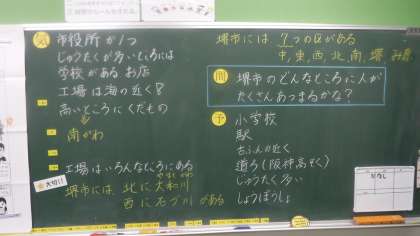 気 市役所が1つ
じゅうたくが多いところには
学校がある お店
工場は海の近く?
高いところにくだもの
南がわ
工場はいろんなところにある
大切!
堺市には 北に 大和川
やまとがわ
西に 石づ川 がある
堺市には 7つの区がある
中,東,西,北,南,堺 み原
問 堺市のどんなところに人が
たくさんあつまるかな?
予 小学校
駅
古ふんの近く
道ろ(阪神高そく)
じゅうたく多い
しょうぼうしょ